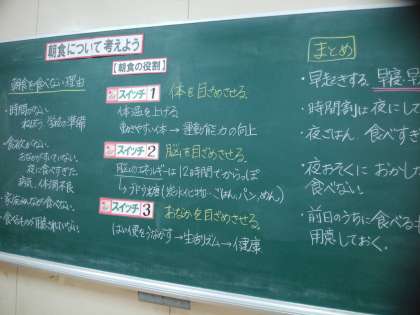 朝食について考えよう
朝食を食べない理由
・時間がない
ねぼう 学校の準備
・食欲がない
おなかがすいていない
夜に食べすぎた
病気、体調不良
・家族みんなが食べない
・食べるものが用意されていない
【朝食の役割】
スイッチ 1 体を目ざめさせる
体温を上げる
動きやすい体→運動能力の向上
スイッチ 2 脳を目ざめさせる
脳のエネルギーは12時間でからっぽ
ブドウ糖(炭水化物・ごはん、パン、めん)
スイッチ 3 おなかを目ざめさせる
はい便をうながす→生活リズム→健康
まとめ
・早起きする 早寝・早
・時間割は夜にし
・夜ごはん 食べすぎ
・夜おそくに おかし
食べない。
・前日のうちに食べるも
用意しておく。